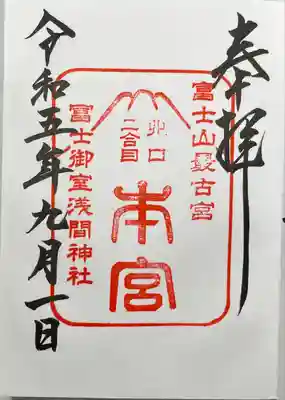 奉拝
富士山最古宮
北口
二合目
本宮
冨士御室浅間神社
令和五年九月一日